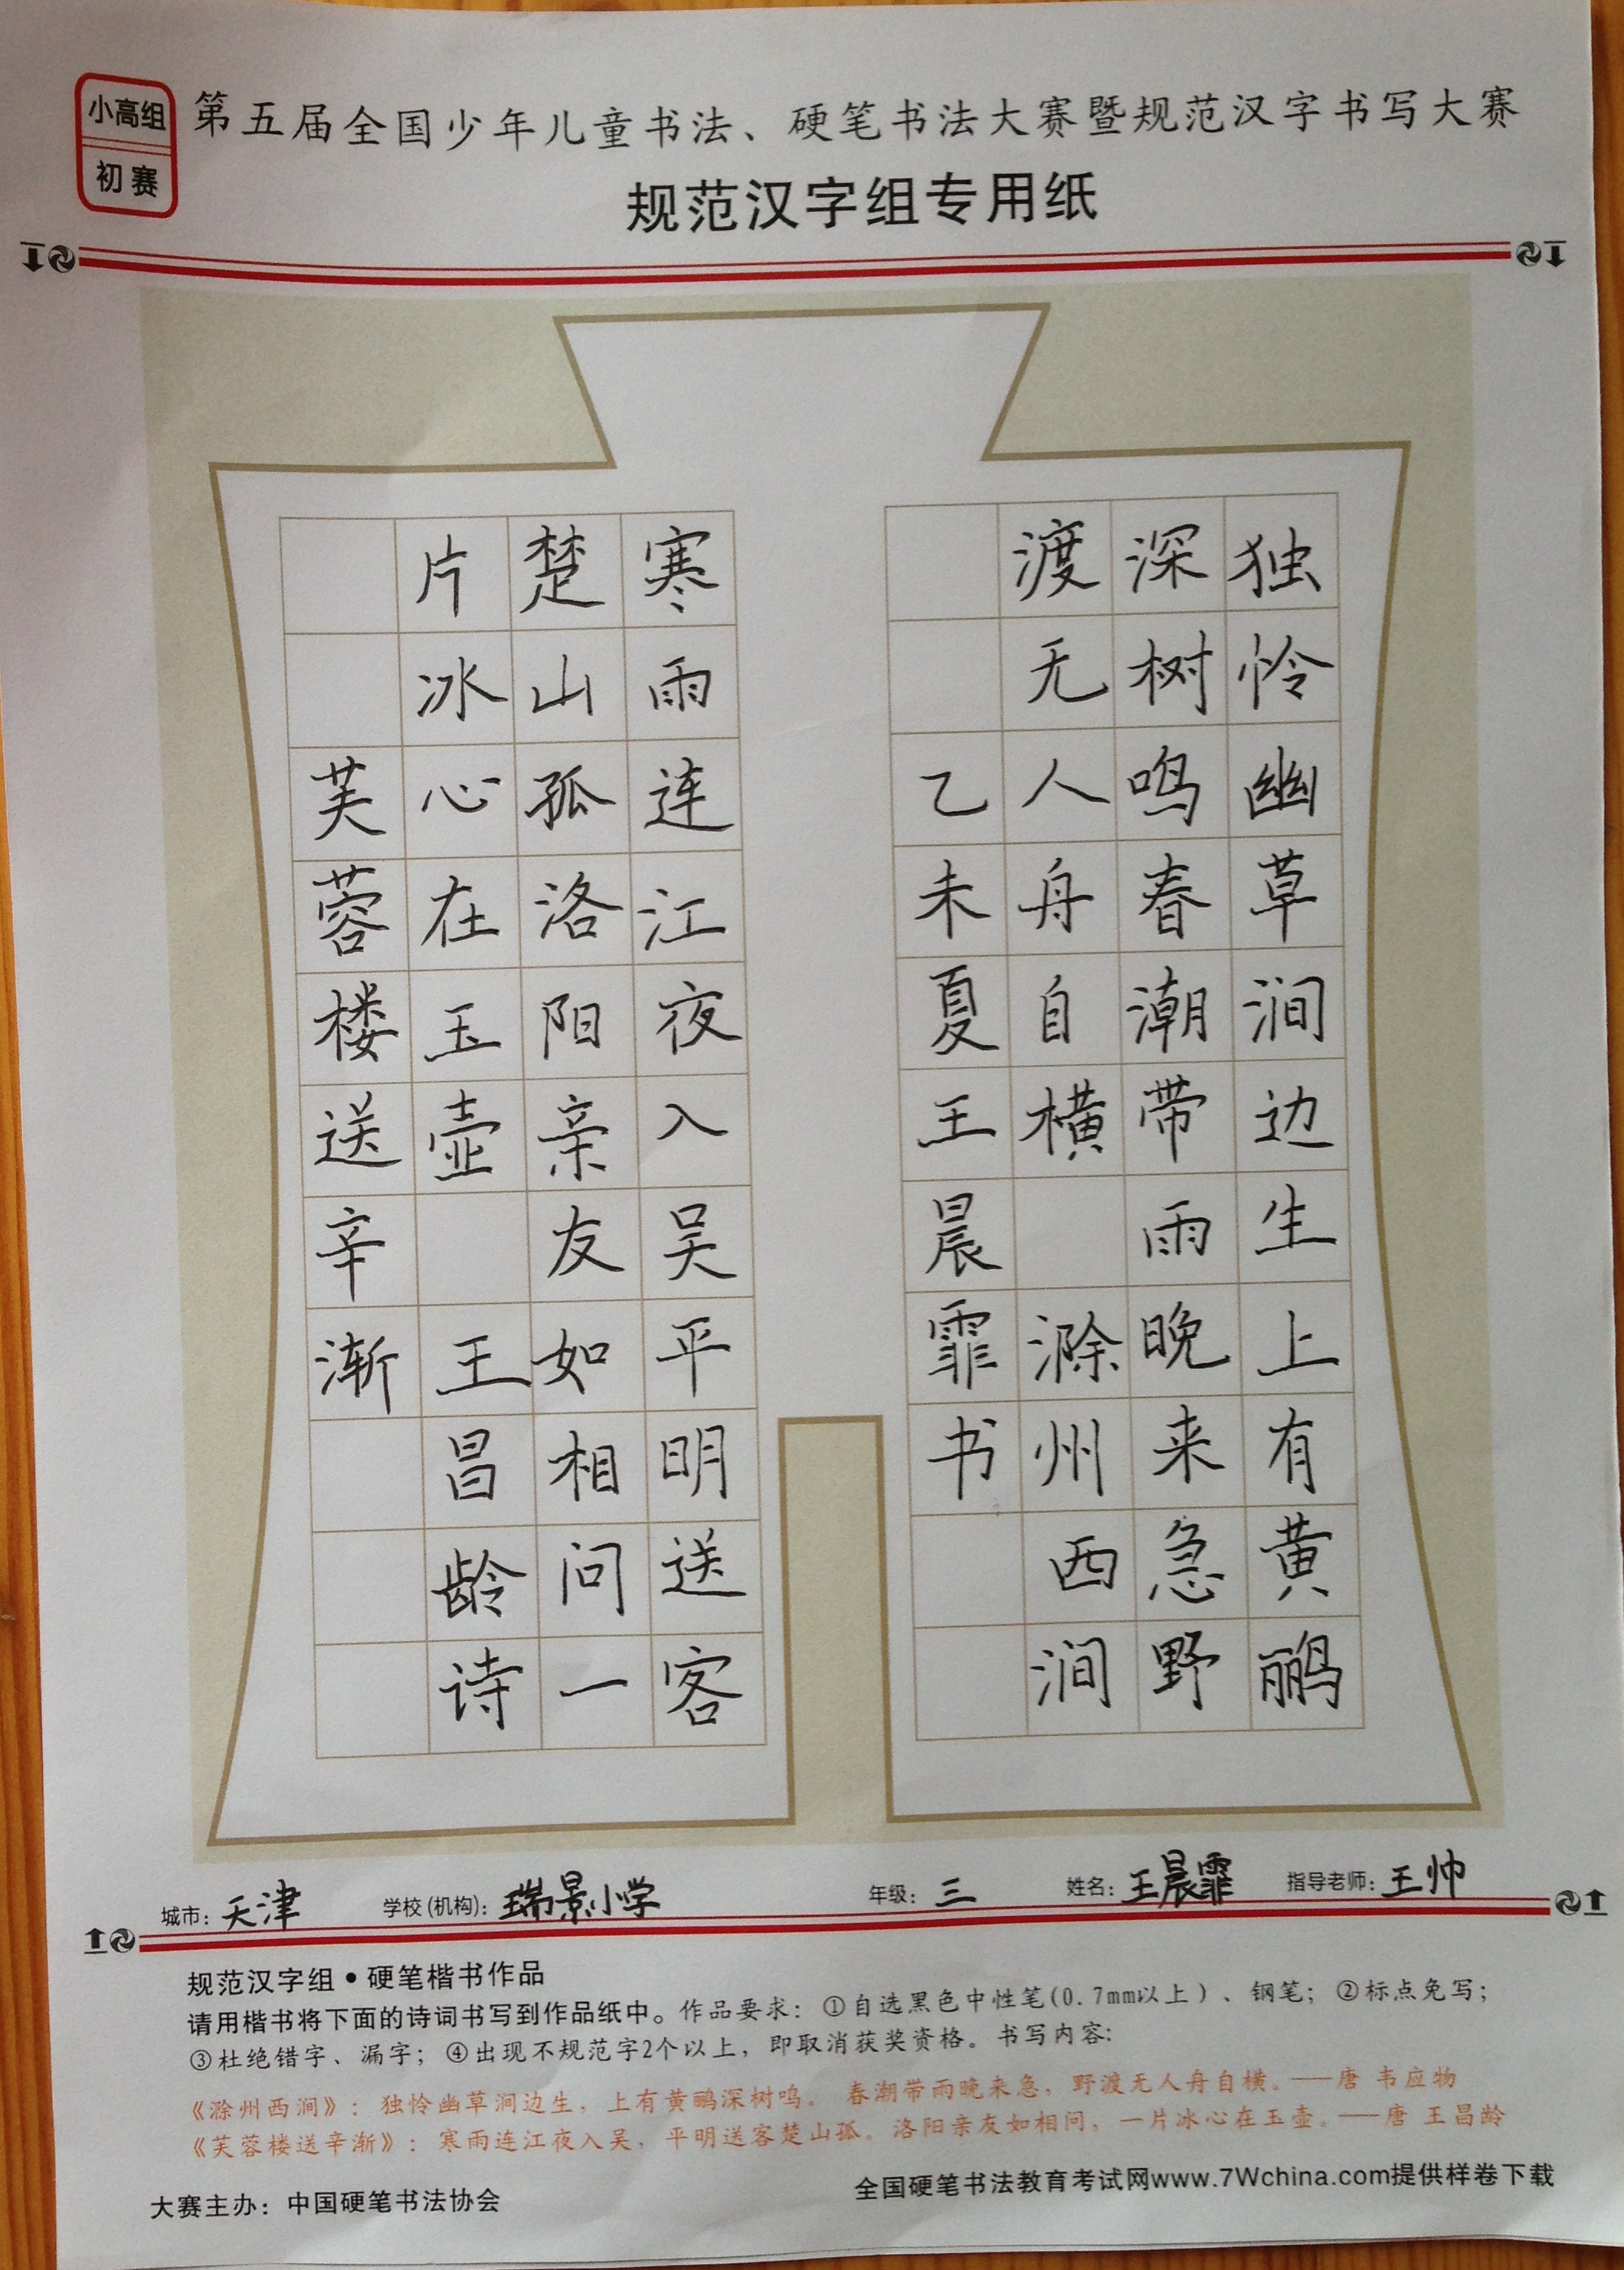 小高组
初赛
第五届全国少年儿童书法、硬笔书法大赛暨规范汉字书写大赛
规范汉字组专用纸
独怜幽草涧边生上有黄鹂
深树鸣春潮带雨晚来急野
渡无人舟自横 滁州西涧
乙未夏王晨霏书
寒雨连江夜入吴平明送客
楚山孤洛阳亲友如相问一
片冰心在玉壶 王昌龄诗
芙蓉楼送辛渐
城市：天津 学校(机构)：瑞景小学 年级：三 姓名：王晨霏 指导老师：王帅
规范汉字组•硬笔楷书作品
请用楷书将下面的诗词书写到作品纸中。作品要求：①自选黑色中性笔(0.7mm以上)、钢笔；②标点免写；
③杜绝错字、漏字；④出现不规范字2个以上，即取消获奖资格。书写内容：
《滁州西涧》：独怜幽草涧边生，上有黄鹂深树鸣。春潮带雨晚来急，野渡无人舟自横。——唐 韦应物
《芙蓉楼送辛渐》：寒雨连江夜入吴，平明送客楚山孤。洛阳亲友如相问，一片冰心在玉壶。——唐 王昌龄
大赛主办：中国硬笔书法协会 全国硬笔书法教育考试网www.7Wchina.com提供样卷下载